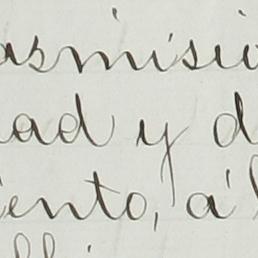 asmisio
ad y d
iento, á